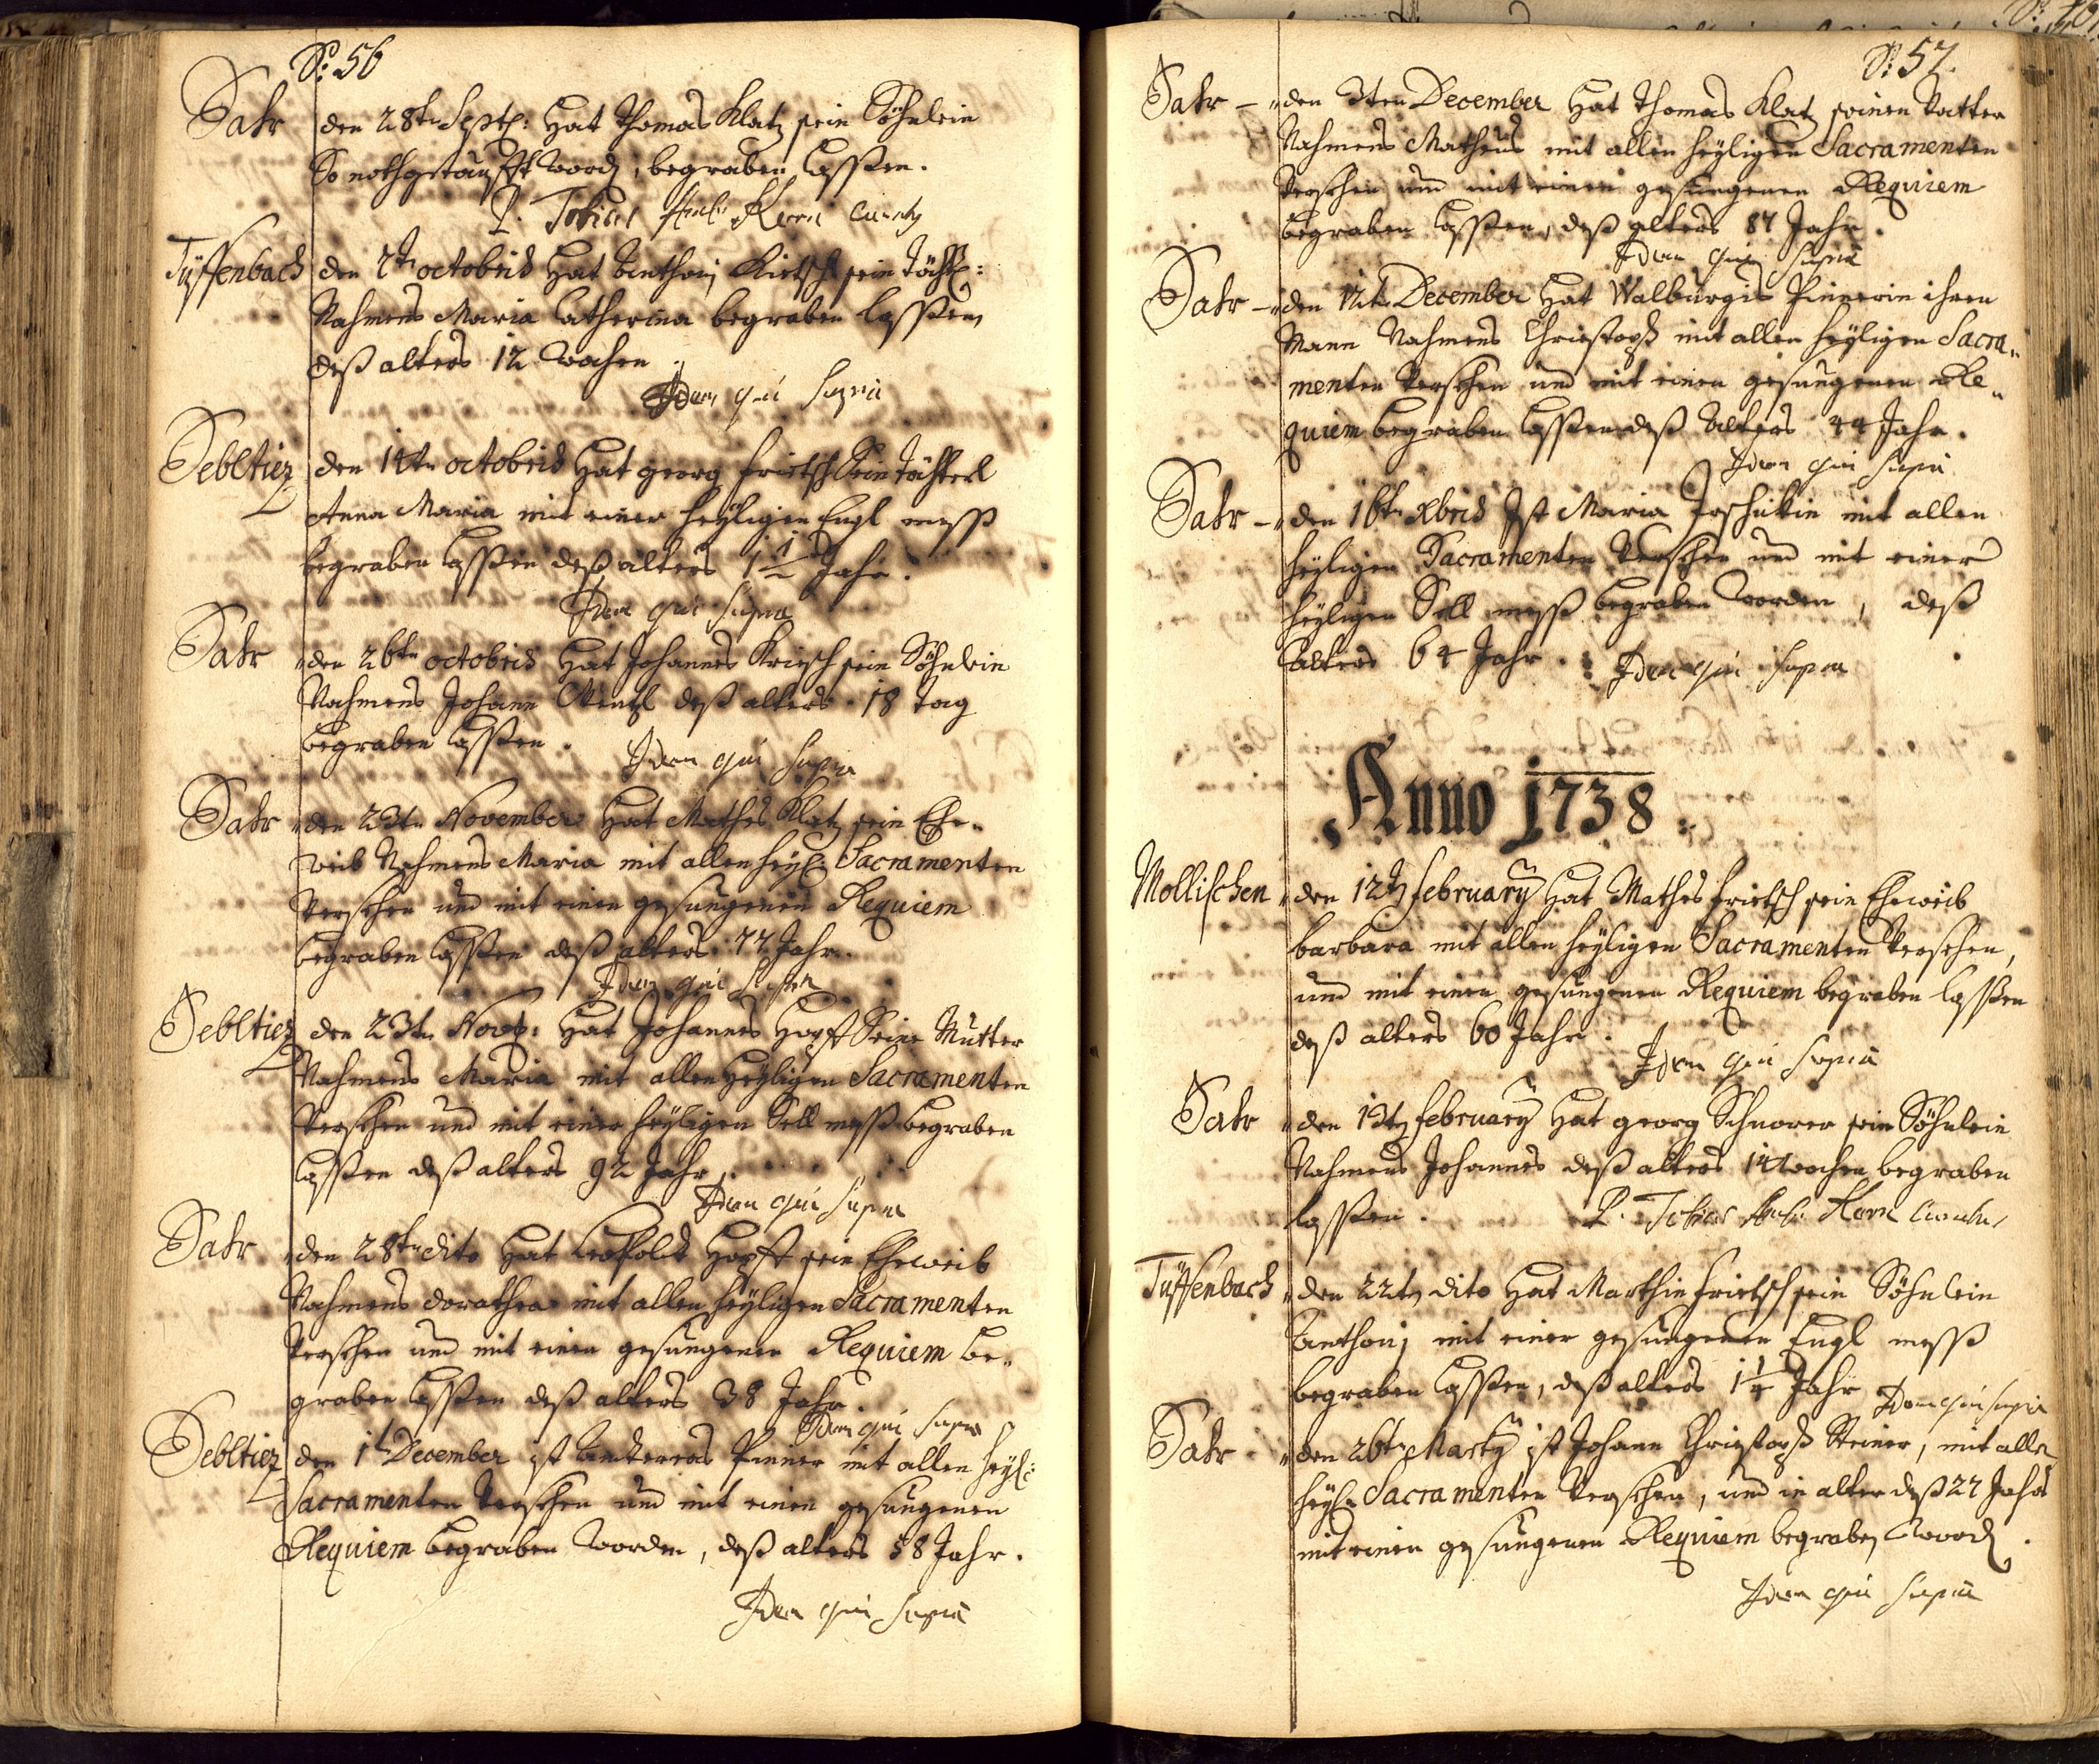 P: 56
Satr den 28tn Septs: Hat Thomas Klatz sein Söhnlein
So nothgetaufft word, begraben lassen.
P. Tobias Korn
Tüffenbach den 2tn octobris Hat Anthonj sein Töchtl:
Nahmens Maria Catherina begraben lassen,
deß alters 12 wochen
Idem qui supra
Sebltiez den 14tn octobris Hat georg frietsch Sein Töchterl
Anna Maria mit einer heÿligen Engl mess
begraben lassen deß alters 1 1/2 Jahr.
Idem qui supra
Satr den 26tn octobris Hat Johannes Kriesch sein Söhnlein
Nahmens Johann Wentzl deß alters 18 tag
begraben lassen.
Idem qui supra
Satr den 23tn November Hat Mathes Klatz sein Ehe-
weib Nahmens Maria mit allen heÿl: Sacramenten
Versehen und mit einen gesungenen Requiem
begraben lassen deß alters 77 Jahr.
Idem qui supra
Sebltiez den 23tn Novb: Hat Johannes Hopft Seine Mutter
Nahmens Maria mit allen Heÿligen Sacramenten
Versehen und mit einer heÿligen Sell mess begraben
lassen deß alters 92 Jahr,
Idem qui supra
Satr den 28tn dito Hat Leopoldt Hopft sein Eheweib
Nahmens dorathea mit allen heÿligen Sacramenten
Versehen und mit einen gesungenen Requiem be-
graben lassen deß alters 38 Jahr.
Idem qui supra
Sebltiez den 1t December ist Andereas Pinner mit allen heÿl:
Sacramenten Versehen und mit einen gesungenen
Requiem begraben worden, deß alters 58 Jahr.
Idem qui supra
P: 57.
Satr den 3ten December Hat Thomas Klatz seinen Vatter
Nahmens Matheus mit allen heÿligen Sacramenten
Versehen und mit einen gesungenen Requiem
begraben lassen, deß alters 87 Jahr.
Idem qui supra
Satr den 12tn December Hat Walburgis Pinnerin ihren
Mann Nahmens Christoph mit allen heÿligen Sacra-
menten Versehen und mit einen gesungenen Re-
quiem begraben lassen deß Alters 44 Jahr.
Idem qui supra
Satr den 16tn Xbris Ist Maria mit allen
heÿligen Sacramenten Versehen und mit einer
heÿligen Sell mess begraben worden, deß
alters 64 Jahr. Idem qui supra
Anno 1738.
Mollischen den 12tn february Hat Mathes frietsch sein Eheweib
barbara mit allen heÿligen Sacramenten Versehen,
und mit einen gesungenen Requiem begraben lassen
deß alters 60 Jahr.
Idem qui supra
Satr den 13tn february Hat georg Schnorer sein Söhnlein
Nahmens Johannes deß alters 14 wochen begraben
lassen. P. Tobias Korn
Tüffenbach den 22tn dito Hat Marthin frietsch sein Söhnlein
Anthonj mit einer gesungenen Engl mess
begraben lassen, deß alters 1 1/4 Jahr Idem qui supra
Satr den 26tn Martÿ ist Johann Christoph Steiner, mit allen
heÿln Sacramenten Versehen, und in alter deß 27 Jahrs
mit einen gesungenen Requiem begraben word.
Idem qui supra